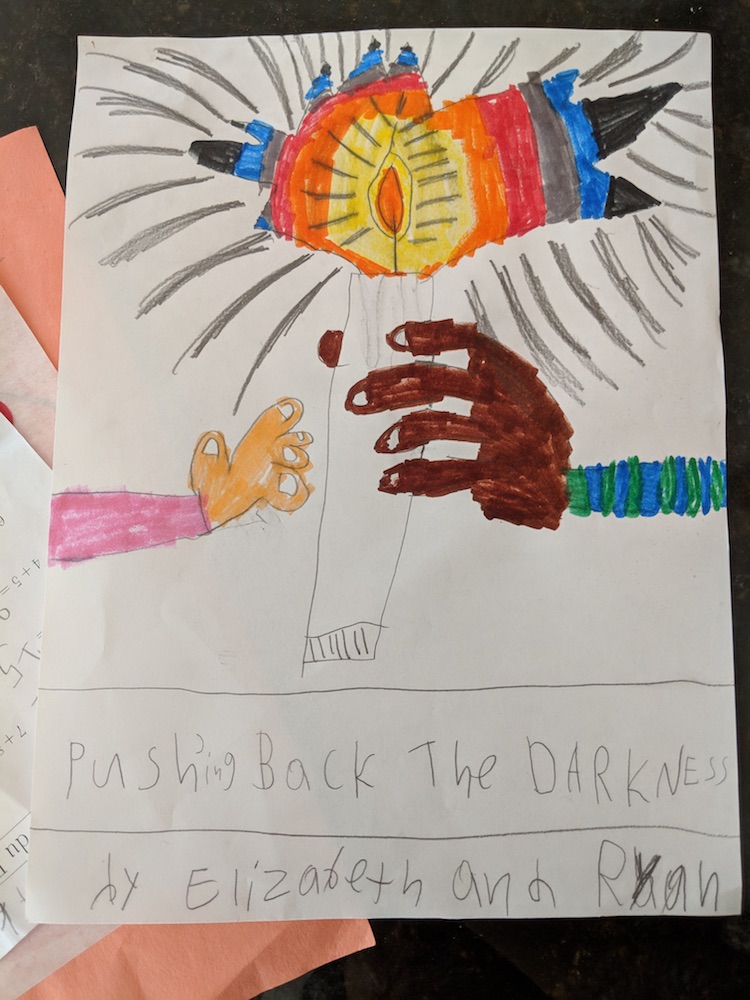 Pushing Back The DARKNESS
by Elizabeth and Ryan
4+5=